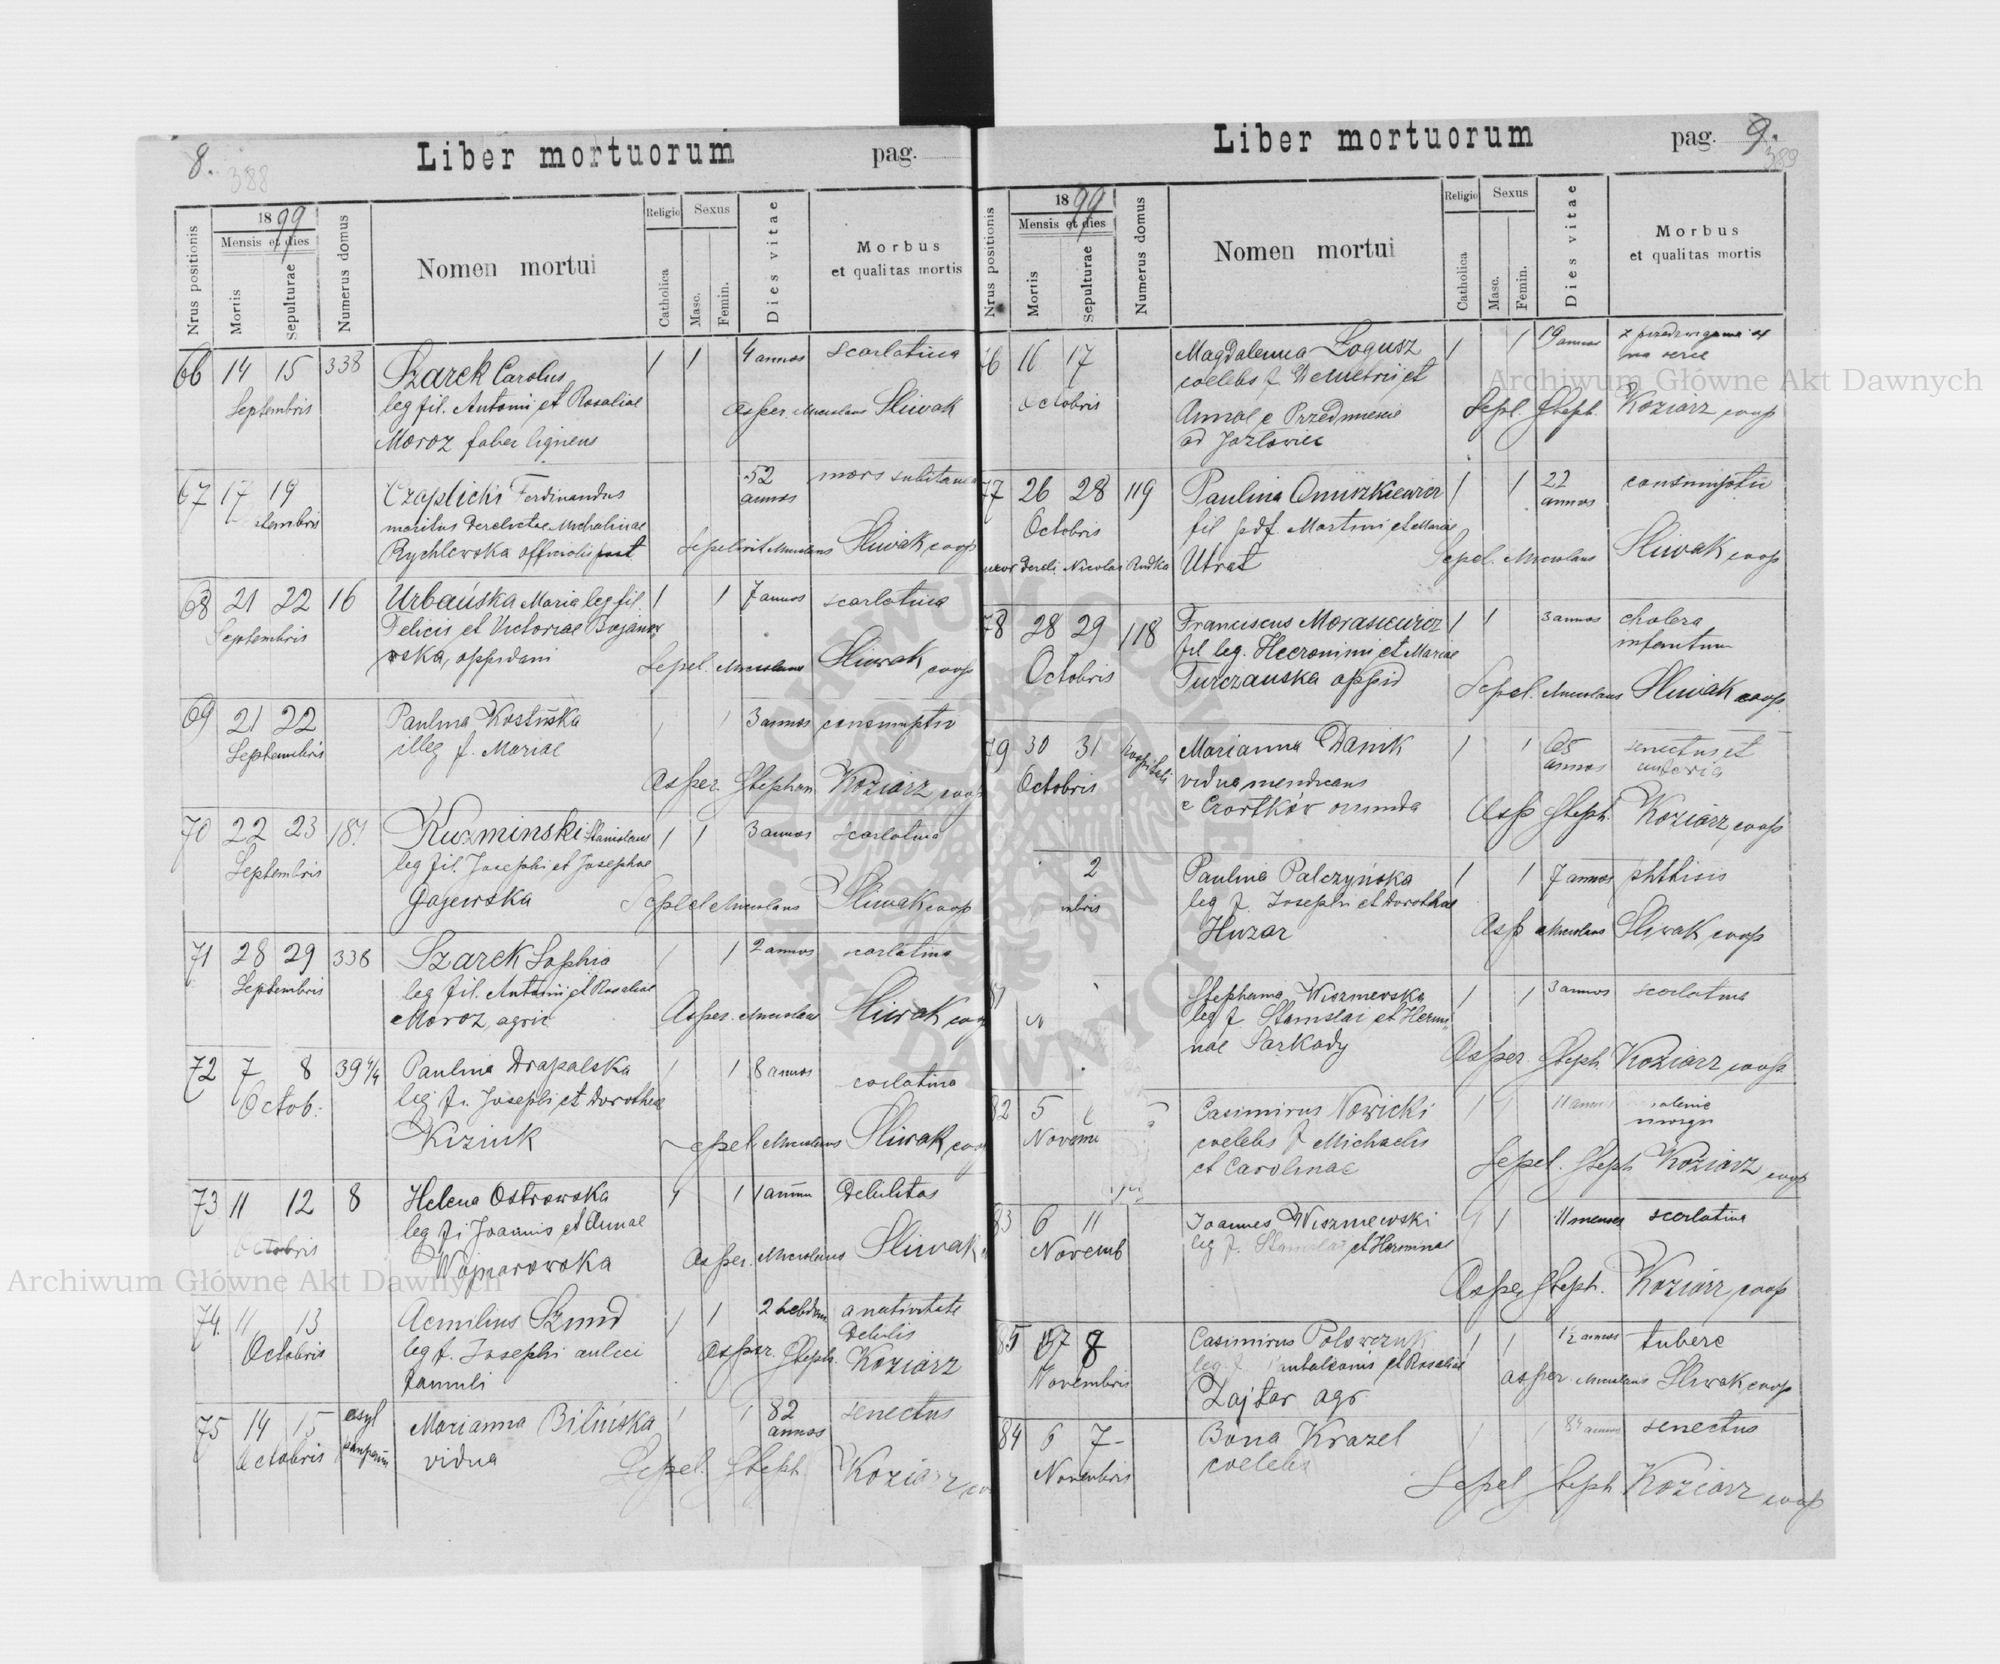 8. 388
Liber mortuorum pag.
Nrus positionis
1899
Mensis et dies
Mortis
Sepulturae
Numerus domus
Nomen mortui
Religio
Catholica
Sexus
Masc.
Femin.
Dies vitae
Morbus
et qualitas mortis
66 14 15 338 Szarek Carolus 1 1 4 annos scarlatina
Septembris leg fil. Antonii et Rosaliae Asper. Nicolaus Sliwak
Moroz faber ligneus
67 17 19 Czaplicki Ferdinandus 52 annos mors subitanea
maritus derelictae Michalinae
Rychlewska officialis Sepelivit Nicolaus Sliwak coop
68 21 22 16 Urbańska Maria leg fil. 1 1 7 annos scarlatina
Septembris Felicis et Victoriae
oppidani Sepel. Nicolaus Sliwak coop
69 21 22 Paulina 1 1 3 annos consumptio
Septembris illeg f. Mariae
Asper. Stephan Koziarz coop
70 22 23 181. Kuzminski Stanislaus 1 1 3 annos scarlatina
Septembris leg fil. Josephi et Josephae
Gajewska Sepel Nicolaus Sliwak coop
71 28 29 338 Szarek Sophia 1 1 2 annos scarlatina
Septembris leg fil. Antonii et Rosaliae
Moroz agric Asper. Nicolaus Sliwak coop
72 7 8 39 Paulina Drapalska 1 1 8 annos scarlatina
Octob. leg f. Josephi et Dorothea
Kiziuk Sepel. Nicolaus Sliwak coop
73 11 12 8 Helena Ostrowska 1 1 1 annum Debilitas
Octobris leg f. Joannis et Annae
Wojnarowska Asper. Nicolaus Sliwak
74. 11 13 Aemilius Szmid 1 1 2 hebdom a nativitate
debilis
Octobris leg f. Josephi aulici Asper. Steph. Koziarz
famuli
75 14 15 asyl Marianna Bilińska 1 1 82 annos senectus
Octobris vidua Sepel. Steph. Koziarz
Liber mortuorum pag. 9.
389
Nrus positionis
1899
Mensis et dies
Mortis
Sepulturae
Numerus domus
Nomen mortui
Religio
Catholica
Sexus
Masc.
Femin.
Dies vitae
Morbus
et qualitas mortis
76 16 17 Magdalenna Logusz 1 1 19 annos
Octobris coelebs f. Demetrii et
Annae e Przedmieście Sepl. Steph. Koziarz coop
ad Jazlowiec
77 26 28 119 Paulina Onuszkiewicz 1 1 22 annos consumptio
Octobris fil pdf. Martini et Mariae
uxor derel. Nicolai Rudka Utrat Sepel. Nicolaus Sliwak coop
78 28 29 118 Franciscus Morasiewicz 1 1 3 annos cholera
infantum
Octobris fil leg. Hieronimi et Mariae
Turczanska oppid Sepel. Nicolaus Sliwak coop.
79 30 31 hospitali Marianna Danik 1 1 65 annos senectus et
Octobris vidua mendicans
e Czortków oriunda Asp Steph. Koziarz coop
2 Paulina Palczyńska 1 1 7 annos phthisis
mbris leg f. Josephi et Dorotheae
Huzar Asp Nicolaus Sliwak coop
Stephania Wiszniewska 1 1 3 annos scarlatina
N leg f. Stanislai et Hermi
nae Parkady Asper. Steph Koziarz coop
82 5 Casimirus Nowicki 1 1 11
Novem coelebs f Michaelis
et Carolinae Sepel. Steph Koziarz coop
83 6 11 Joannes Wiszniewski 1 1 11 menses scarlatina
Novemb leg f. Stanislai et Herminae
Asper Steph. Koziarz coop
85 7 8 Casimirus Polowczuk 1 1 1½ annos tuberc
Novembris leg f. Pantaleonis et Rosaliae
Zajtar agr asper. Nicolaus Sliwak coop
84 6 7- Bona Krazel 1 1 84 annos senectus
Novembris coelebs Sepel Steph Koziarz coop
Archiwum Główne Akt Dawnych
Archiwum Główne Akt Dawnych